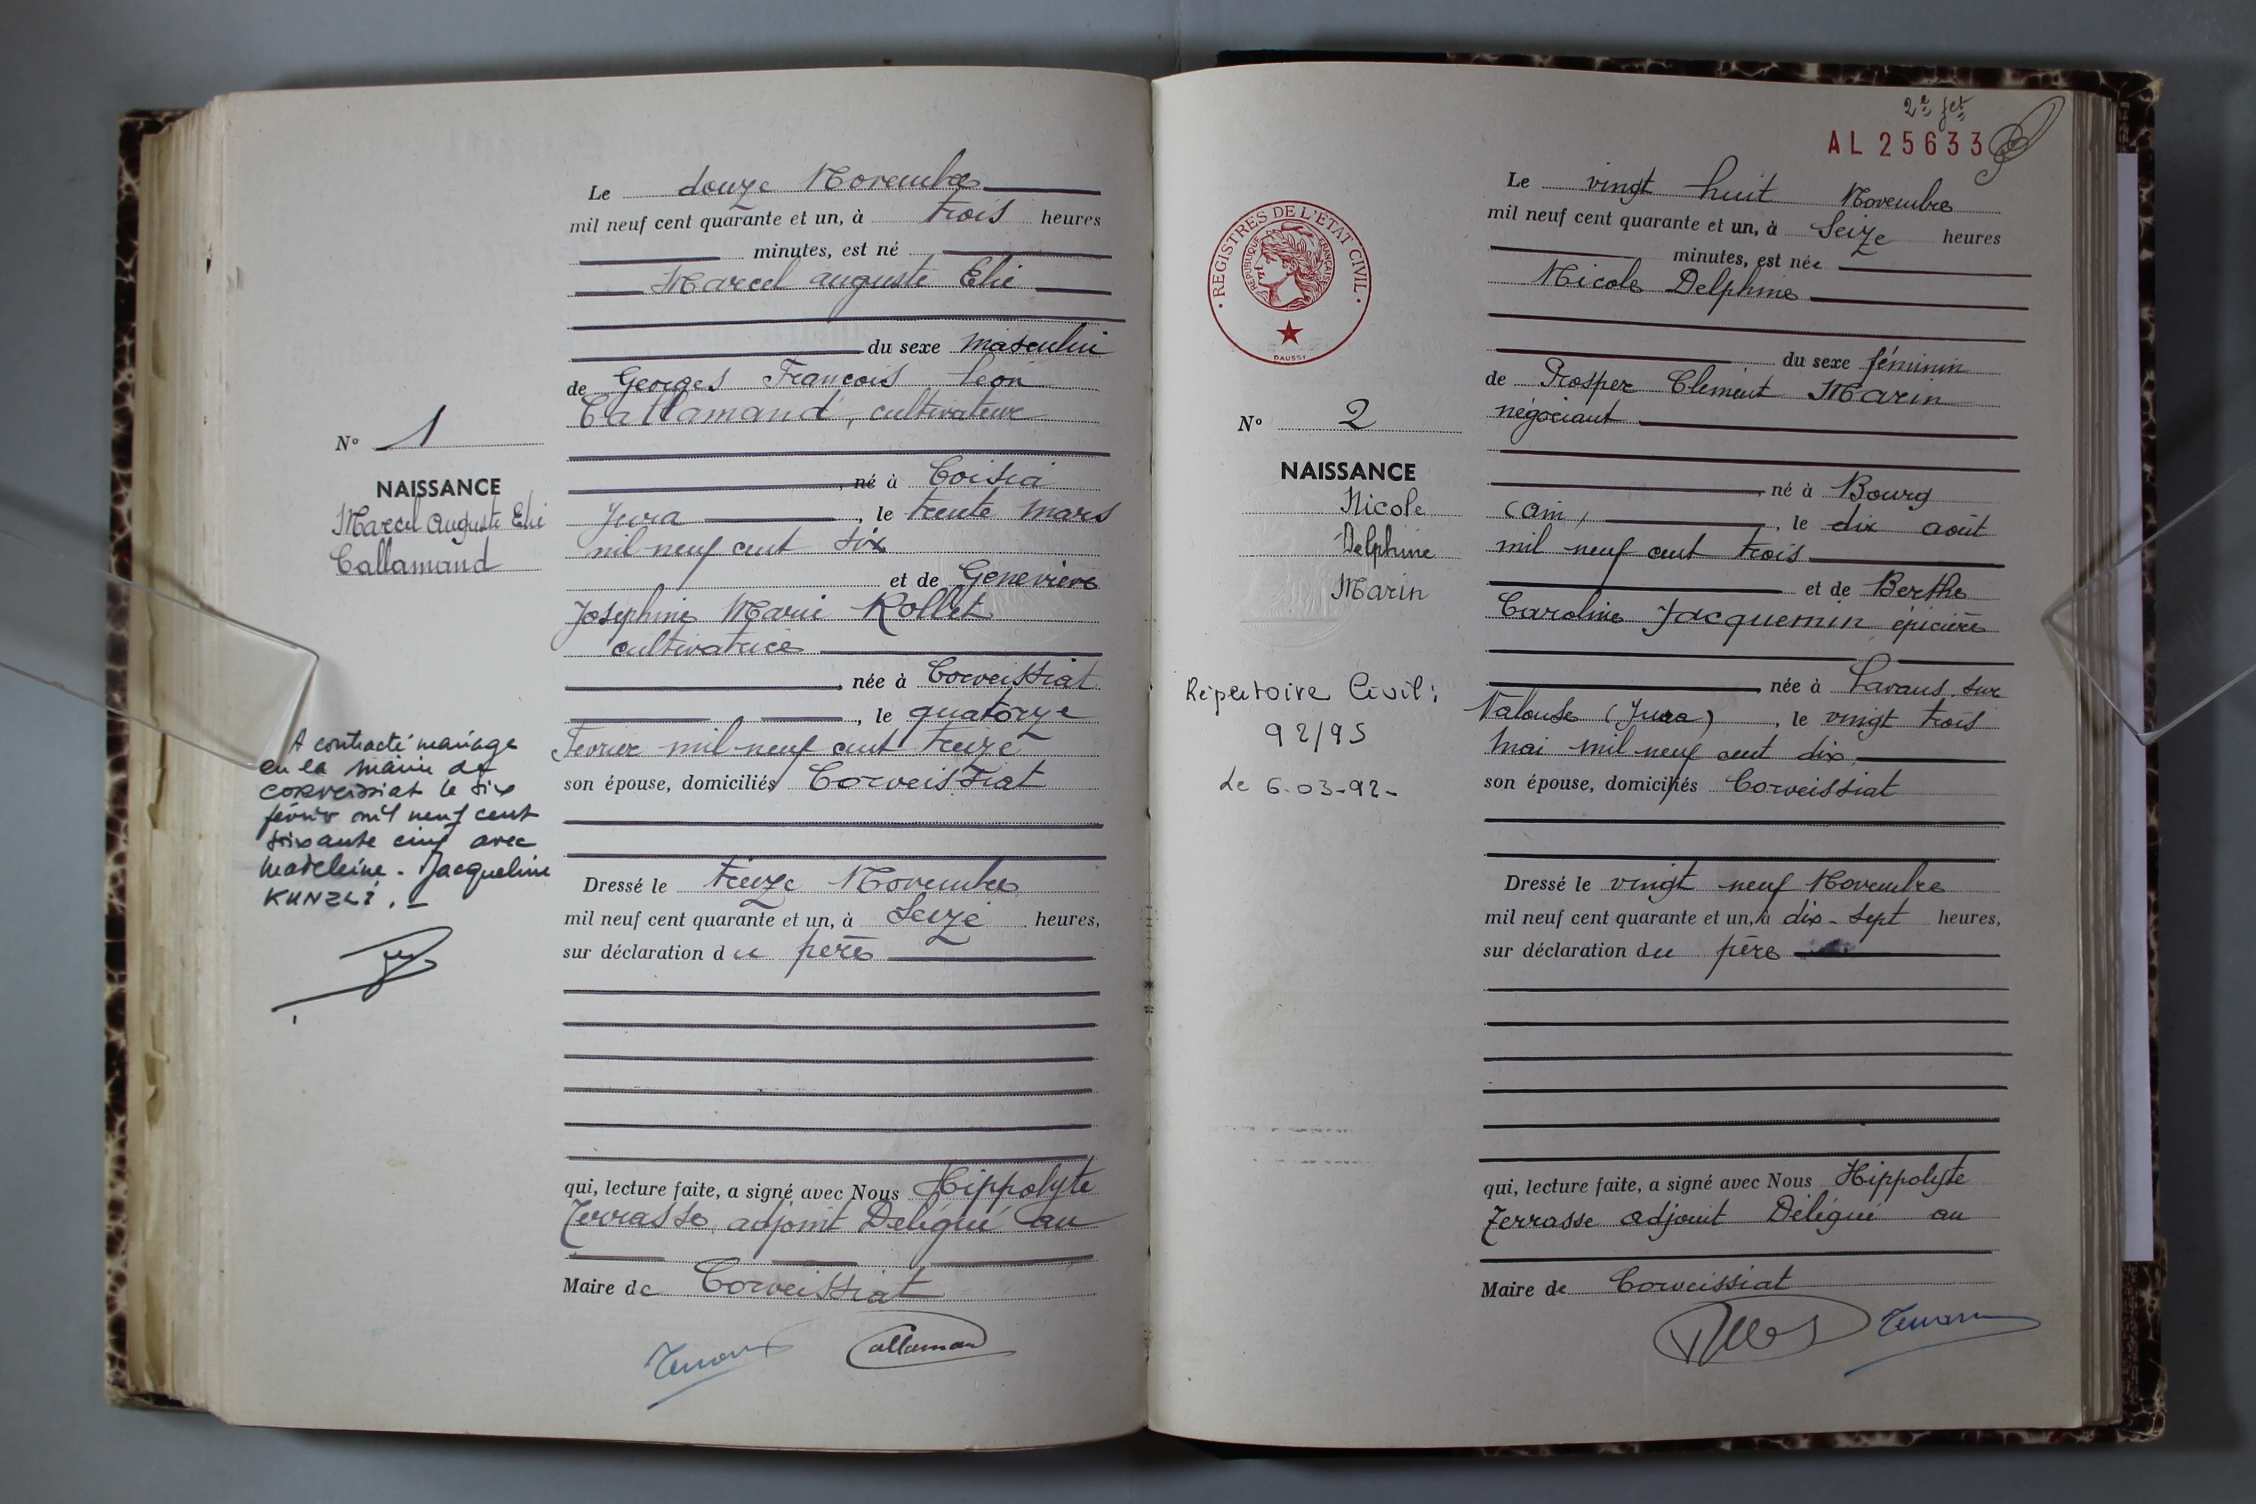 Le douze Novembre
mil neuf cent quarante et un, à trois heures
minutes, est né
Marcel Auguste Elie
du sexe masculin
de Georges François Léon
Callamand, cultivateur
N° 1
né à Coisia
NAISSANCE
Marcel Auguste Elie
Callamand
Jura, le trente mars
mil neuf cent six
et de Geneviève
Joséphine Marie Rollet
cultivatrice
née à Corveissiat
, le quatorze
Février mil neuf cent treize
son épouse, domiciliés Corveissiat
A contracté mariage
en la mairie de
Corveissiat le six
février mil neuf cent
soixante cinq avec
Madeleine - Jacqueline
KUNZLI. -
Dressé le treize Novembre
mil neuf cent quarante et un, à Seize heures,
sur déclaration du père
qui, lecture faite, a signé avec Nous Hippolyte
Terrasse, adjoint Délégué au
Maire de Corveissiat
Callaman
2e fet
AL 25633
REGISTRES DE L'ÉTAT CIVIL
RÉPUBLIQUE FRANÇAISE
DAUSSY
Le vingt huit Novembre
mil neuf cent quarante et un, à Seize heures
minutes, est née
Nicole Delphine
du sexe féminin
de Prosper Clément Marin
négociant
N° 2
NAISSANCE
Nicole
Delphine
Marin
né à Bourg
(Ain), le dix août
mil neuf cent trois
et de Berthe
Caroline Jacquemin épicière
née à Lavans sur
Valouse (Jura), le vingt trois
Mai mil neuf cent dix
son épouse, domiciliés Corveissiat
Répertoire Civil :
92/95
Le 6-03-92-
Dressé le vingt neuf Novembre
mil neuf cent quarante et un, à dix-sept heures,
sur déclaration du père
qui, lecture faite, a signé avec Nous Hippolyte
Terrasse adjoint Délégué au
Maire de Corveissiat